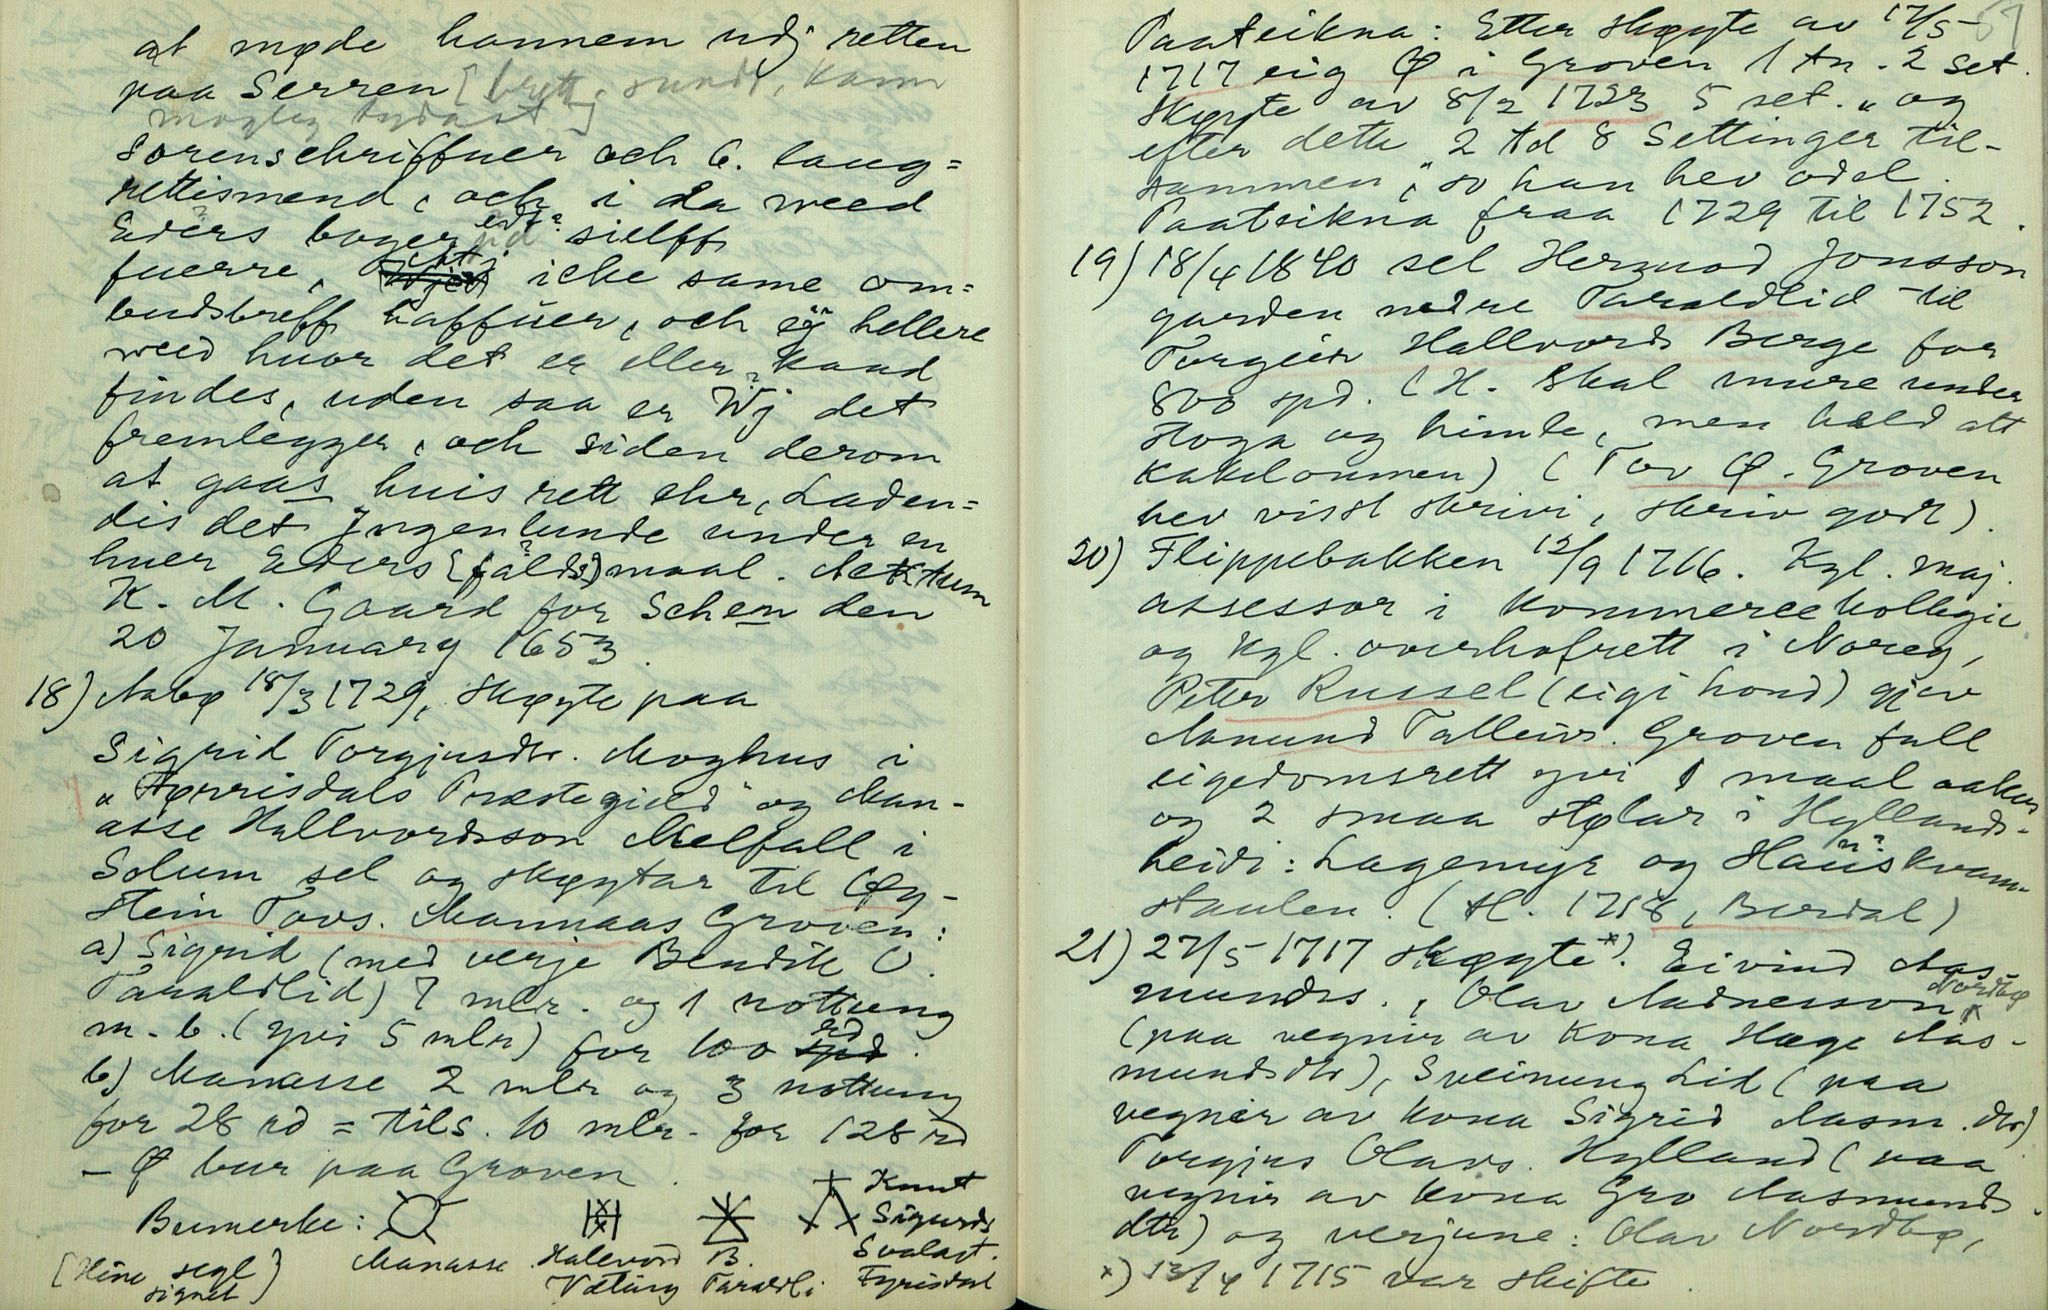 at møde hannem udj retten
paa Serren [brett, sundt, kann
mogleg tydast]
Sorenschriffuer och 6. laug=
rettismend, och i da weed
Eders bager sielff
fuerre, icke same om=
budsbreff haffuer, och ej hellere
weed huor det er eller kand
findes, uden saa er Wj det
fremlegger, och siden derom
at gaas huis rett ehr, Laden=
dis det Jngenlunde under en
huer Eders [falds] maal. Actum
K. M. Gaard for Schen den
20 January 1653.
18) Aabø 18/3 1729, skøyte paa
Sigrid Torgjusdtr. Moghus i
"Hørrisdals Præstegield" og Man-
asse Hallvordsson Melfall i
Solum sel og skøytar til Øy-
stein Tovs. Mannaas Groven:
a) Sigrid (med verje Bendik O.
Taraldlid) 7 mlr. og 1 nottung
m. b. (yvi 5 mlr) for 100 rd
b) Manasse 2 mlr og 3 nottung
for 28 rd = tils. 10 mlr. for 128 rd
- Ø bur paa Groven.
Bumerke: Manasse Halvord B. Knut
Sigurds
Svalast.
[Hine segl Væting Taraldli Fyrisdal
signet]
57
Paateikna: Etter skøyte av 17/5
1717 eig Ø i Groven 1 tn. 2 set.
Skøyte av 8/2 1723 5 set. " og
efter dette "2 td 8 Settinger til-
sammen", so han hev odel.
Paateikna fraa 1729 til 1752.
19) 18/4 1840 sel Hermod Jonsson
garden nedre Taraldlid til
Torgeir Hallvords Berge for
800 spd. (H. skal mure under
stoga og himle, men held att
kakelomnen) (Tov Ø. Groven
hev visst skrivi, skriv godt).
20) Flippebakken 12/9 1716. Kgl. maj.
assessor i Kommercekollegie
og Kgl. overhofrett i Noreg,
Peter Russel (eigi hond) gjev
Aamund Talleivs. Groven full
eigedomsrett yvi 1 maal aaker
og 2 smaa stølar i Hyllands-
heidi: Lagemyr og Hauskvam-
staulen. (H. 1718, Burdal)
21) 27/5 1717 skøyte x). Eivind Aas-
mundss., Olav Aadnesson Nordbø
(paa vegnir av kona Hæge Aas-
mundsdtr), Sveinung Lid (paa
vegnir av kona Sigrid Aasm.dtr)
Torgjus Olavs. Hylland (paa
vegnir av kona Gro Aasmunds-
dtr) og verjune: Olav Nordbø,
x) 13/4 1715 var skifte